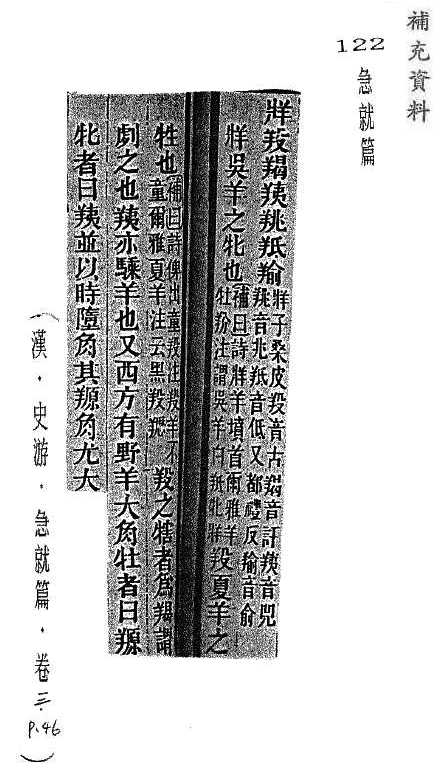 補充資料
122 急就篇
牂羖羯羠挑羝羭牂子桑皮羖音古羯音訐羠音兕
挑音兆羝音低又都禮反羭音俞
牂吳羊之牝也補曰詩牂羊墳首爾雅羊
牡羒注謂吳羊白羝牝牂羖夏羊之
牲也補曰詩俾出童羖注羖羊不
童爾雅夏羊注云黑羖䍽羖之犗者為羯謂
劇之也羠亦騬羊也又西方有野羊大角牡者曰羱
牝者曰羠並以時墮角其羱角尤大
(漢・史游・急就篇・卷三・P.46)